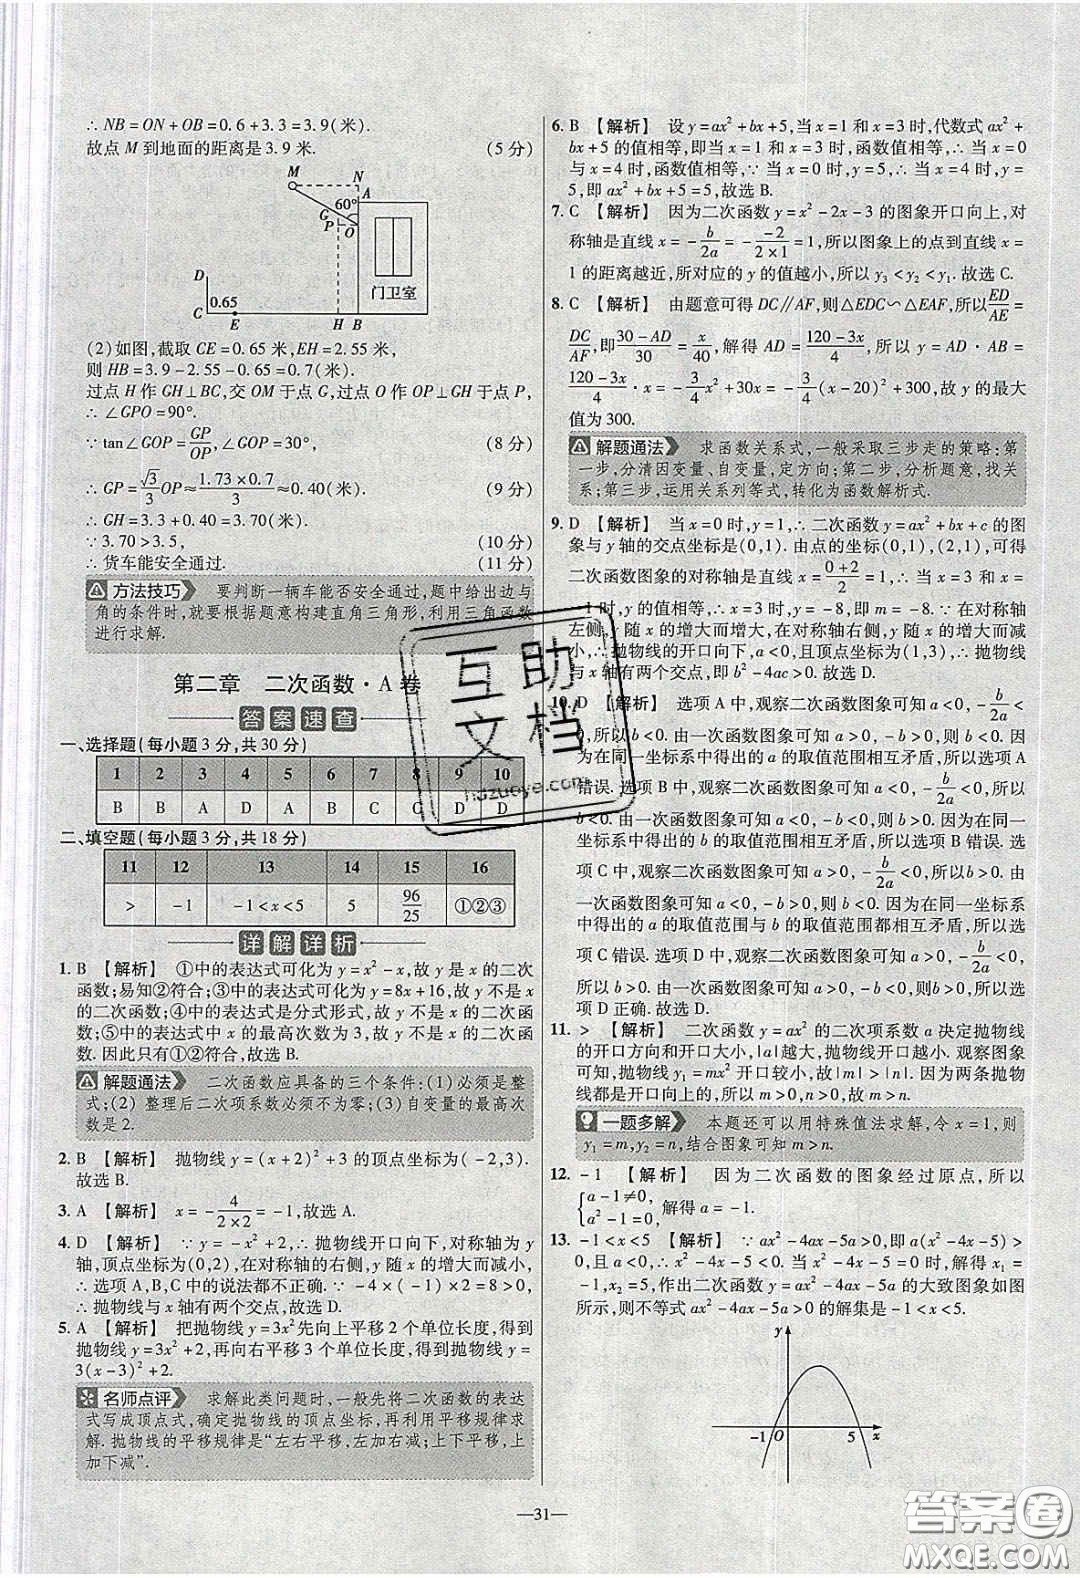 ∴ NB=ON+OB=0.6+3.3=3.9(米).
故点 M 到地面的距离是 3.9 米. (5 分)
M N
A
60°
G
P O
D
门卫室
0.65
C E H B
(2)如图,截取 CE=0.65 米,EH=2.55 米,
则 HB=3.9-2.55-0.65=0.7(米).
过点 H 作 GH⊥BC,交 OM 于点 G,过点 O 作 OP⊥GH 于点 P,
∴ ∠GPO=90°.
∵ tan∠GOP=GP/OP,∠GOP=30°, (8 分)
∴ GP=√3/3 OP≈(1.73×0.7)/3≈0.40(米). (9 分)
∴ GH=3.3+0.40=3.70(米).
∵ 3.70>3.5, (10 分)
∴ 货车能安全通过. (11 分)
方法技巧 要判断一辆车能否安全通过,题中给出边与
角的条件时,就要根据题意构建直角三角形,利用三角函数
进行求解.
第二章 二次函数·A 卷
答案速查
一、选择题(每小题 3 分,共 30 分)
1 2 3 4 5 6 7 8 9 10
B B A D A B C C D D
二、填空题(每小题 3 分,共 18 分)
11 12 13 14 15 16
> -1 -1<x<5 5 96/25 ①②③
详解详析
1. B 【解析】 ①中的表达式可化为 y=x²-x,故 y 是 x 的二次
函数;易知②符合;③中的表达式可化为 y=8x+16,故 y 不是 x
的二次函数;④中的表达式是分式形式,故 y 不是 x 的二次函
数;⑤中的表达式中 x 的最高次数为 3,故 y 不是 x 的二次函
数. 因此只有①②符合,故选 B.
解题通法 二次函数应具备的三个条件:(1)必须是整
式;(2)整理后二次项系数必须不为零;(3)自变量的最高次
数是 2.
2. B 【解析】 抛物线 y=(x+2)²+3 的顶点坐标为(-2,3).
故选 B.
3. A 【解析】 x=-4/(2×2)=-1,故选 A.
4. D 【解析】 ∵ y=-4x²+2,∴ 抛物线开口向下,对称轴为 y
轴,顶点坐标为(0,2),在对称轴的右侧,y 随 x 的增大而减小,
∴ 选项 A,B,C 中的说法都不正确. ∵ -4×(-4)×2=8>0,
∴ 抛物线与 x 轴有两个交点,故选 D.
5. A 【解析】 把抛物线 y=3x²先向上平移 2 个单位长度,得到
抛物线 y=3x²+2,再向右平移 3 个单位长度,得到抛物线 y=
3(x-3)²+2.
名师点评 求解此类问题时,一般先将二次函数的表达
式写成顶点式,确定抛物线的顶点坐标,再利用平移规律求
解. 抛物线的平移规律是“左右平移,左加右减;上下平移,上
加下减”.
6. B 【解析】 设 y=ax²+bx+5,当 x=1 和 x=3 时,代数式 ax²+
bx+5 的值相等,即当 x=1 和 x=3 时,函数值相等,∴ 当 x=0
与 x=4 时,函数值相等. ∵ 当 x=0 时,y=5,∴ 当 x=4 时,y=
5,即 ax²+bx+5=5,故选 B.
7. C 【解析】 因为二次函数 y=x²-2x-3 的图象开口向上,对
称轴是直线 x=-b/2a=-(-2)/(2×1)=1,所以图象上的点到直线 x=
1 的距离越近,所对应的 y 的值越小,所以 y₃<y₂<y₁. 故选 C.
8. C 【解析】 由题意可得 DC∥AF,则△EDC∽△EAF,所以ED/AE=
DC/AF,即(30-AD)/30=x/40,解得 AD=(120-3x)/4,所以 y=AD·AB=
(120-3x)/4·x=-3/4x²+30x=-3/4(x-20)²+300,故 y 的最大
值为 300.
解题通法 求函数关系式,一般采取三步走的策略:第
一步,分清因变量、自变量,定方向;第二步,分析题意,找关
系;第三步,运用关系列等式,转化为函数解析式.
9. D 【解析】 当 x=0 时,y=1,∴ 二次函数 y=ax²+bx+c 的图
象与 y 轴的交点坐标是(0,1). 由点的坐标(0,1),(2,1),可得
二次函数图象的对称轴是直线 x=(0+2)/2=1,
-1 时,y=-8,即 m=-8. ∵ 在对称轴
左侧,y 随 x 的增大而增大,在对称轴右侧,y 随 x 的增大而减
小,∴ 抛物线的开口向下,且顶点坐标为(1,3),∴ 抛物线与 x
轴有两个交点,即 b²-4ac>0. 故选 D.
10. D 【解析】 选项 A 中,观察二次函数图象可知 a<0, -b/2a<
0,所以 b<0. 由一次函数图象可知 a>0, -b>0,所以 b<0. 因
为在同一坐标系中得出的 a 的取值范围不同,所以选项 A
错误. 选项 B 中,观察二次函数图象可知 a<0, -b/2a<0,所以
b<0. 由一次函数图象可知 a<0, -b<0,所以 b>0. 因为在同
一坐标系中得出的 b 的取值范围相互矛盾,所以选项 B 错误.
选项 C 中,观察二次函数图象可知 a>0, -b/2a<0,所以 b>0. 由
一次函数图象可知 a<0, -b>0,所以 b<0. 因为在同一坐标系
中得出的 a 的取值范围与 b 的取值范围都相互矛盾,所以
选项 C 错误. 选项 D 中,观察二次函数图象可知 a>0, -b/2a<0,
所以 b>0. 由一次函数图象可知 a>0, -b<0,所以 b>0,所以选项
D 正确. 故选 D.
11. > 【解析】 二次函数 y=ax² 的二次项系数 a 决定抛物线
的开口方向和开口大小,|a|越大,抛物线开口越小. 观察图象
可知,抛物线 y₁=mx² 开口较小,故|m|>|n|. 因为两条抛物
线都是开口向上,所以 m>0,n>0,故 m>n.
一题多解 本题还可以用特殊值法求解,令 x=1,则
y₁=m,y₂=n,结合图象可知 m>n.
12. -1 【解析】 因为二次函数的图象经过原点,所以
{a-1≠0, a²-1=0, 解得 a=-1.
13. -1<x<5 【解析】 ∵ ax²-4ax-5a>0,即 a(x²-4x-5)>
0,a<0,∴ x²-4x-5<0. 当 x²-4x-5=0 时,解得 x₁=
-1,x₂=5,作出二次函数 y=ax²-4ax-5a 的大致图象如图
所示,则不等式 ax²-4ax-5a>0 的解集是-1<x<5.
y
-1 O 5 x
—31—
互助文档
hdzuoye.com
答案圈
MXQE.COM